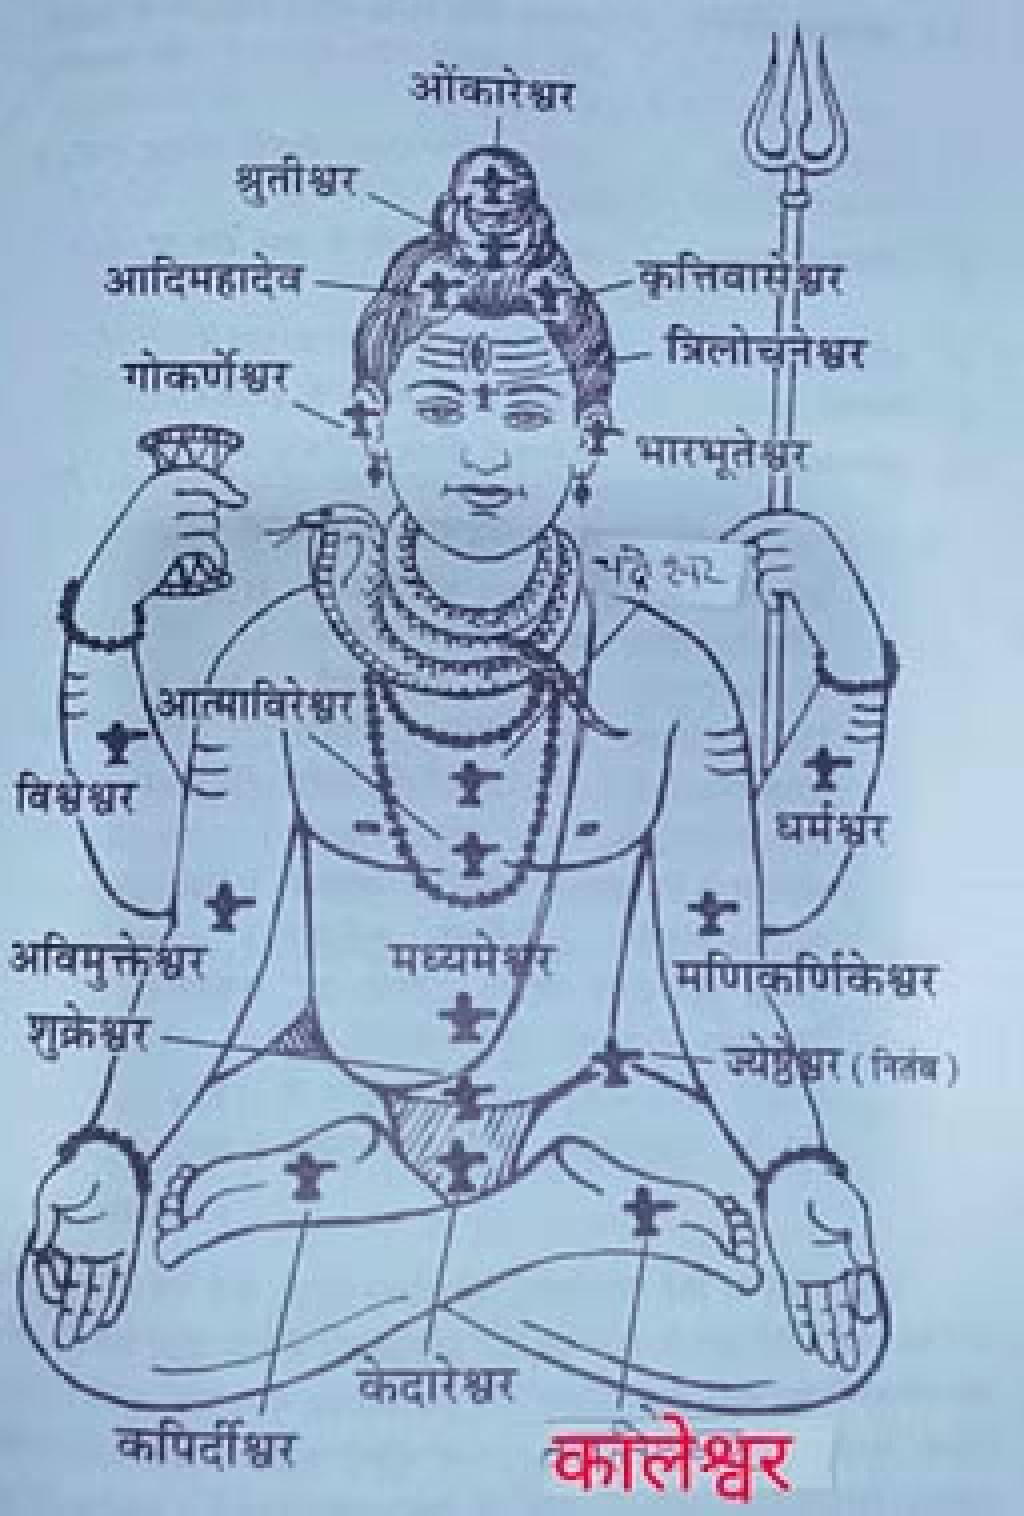 ओंकारेश्वर
श्रुतीश्वर
आदिमहादेव
कृत्तिवासेश्वर
त्रिलोचनेश्वर
गोकर्णेश्वर
भारभूतेश्वर
आत्माविरेश्वर
विश्वेश्वर
धर्मेश्वर
अविमुक्तेश्वर
मध्यमेश्वर
मणिकर्णिकेश्वर
शुक्रेश्वर
ज्येष्ठेश्वर ( नितंब )
केदारेश्वर
कपिर्दीश्वर
कालेश्वर